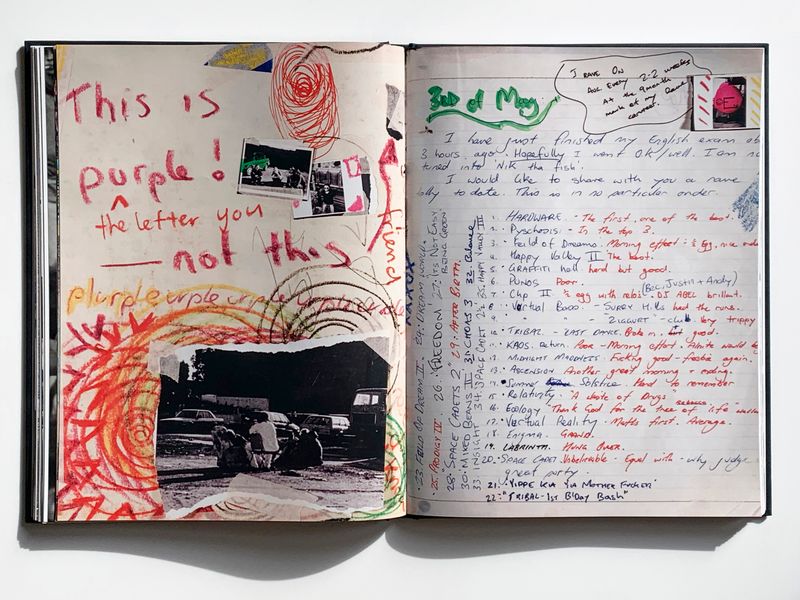 This is
purple!
the letter you
— not this
friend
plurple urple urple urple
3rd of May
I RAVE ON
AVE EVERY 2-2 weekes
At the 9 month
mark of my Rave
career.
I have just finished my English exam
3 hours ago. Hopefully I went OK/well. I am
tuned into 'Nik tha fish'.
I would like to share with you a rave
to date. This is in no particular order.
1. HARDWARE. - The first, one of the best.
2. Pyschosis - In the top 3.
3. Feild of Dreams. Morning effort : ½ Egg, nice
4. Happy Valley II The best.
5. GRAFFITI hall hard but good.
6. PUNOS Poor. (Bec, Justin + Andy)
7. Chp II ½ egg with rebos. DJ ABEL brillant.
8. Virtual Bass - SURRY Hills had the runs.
9. " " - ZIGGURT - club. Very trippy
10. TRIBAL - LAST DANCE. good.
11. KAOS. Return. Poor - Morning effort. Alnite would
12. MIDNIGHT MADNESS - Fucking good - Feobie again.
13. ASCENSION Another great morning + ending.
14. Summer Solstice. Hard to remember
15. Relativity. "A waste of Drugs
16. Ecology "Thank God for the tree of life"
17. Vertual Reality - Maths first. Average.
18. Enigma. GRAND.
19. LABRINTH. HUNG OVER.
20. SPACE CADET. Unbelivable - Equal with - why judge
great party.
21. "YIPPE KIA YIA MOTHER FUCKER"
22. "TRIBAL - 1st B'Day Bash"
23. FEILD OF DREAM II. 24. DREAM
25. PRODIGY IV 26. FREEDOM 27. ITS NOT EASY
BEING GREEN
28. SPACE CADETS 2 29. AFTER BIRTH.
30. MIXED BEANS III 31. CHOAS 3 32. Balance
33. 34. SPACE CADET 35. HAPPY VALLEY III